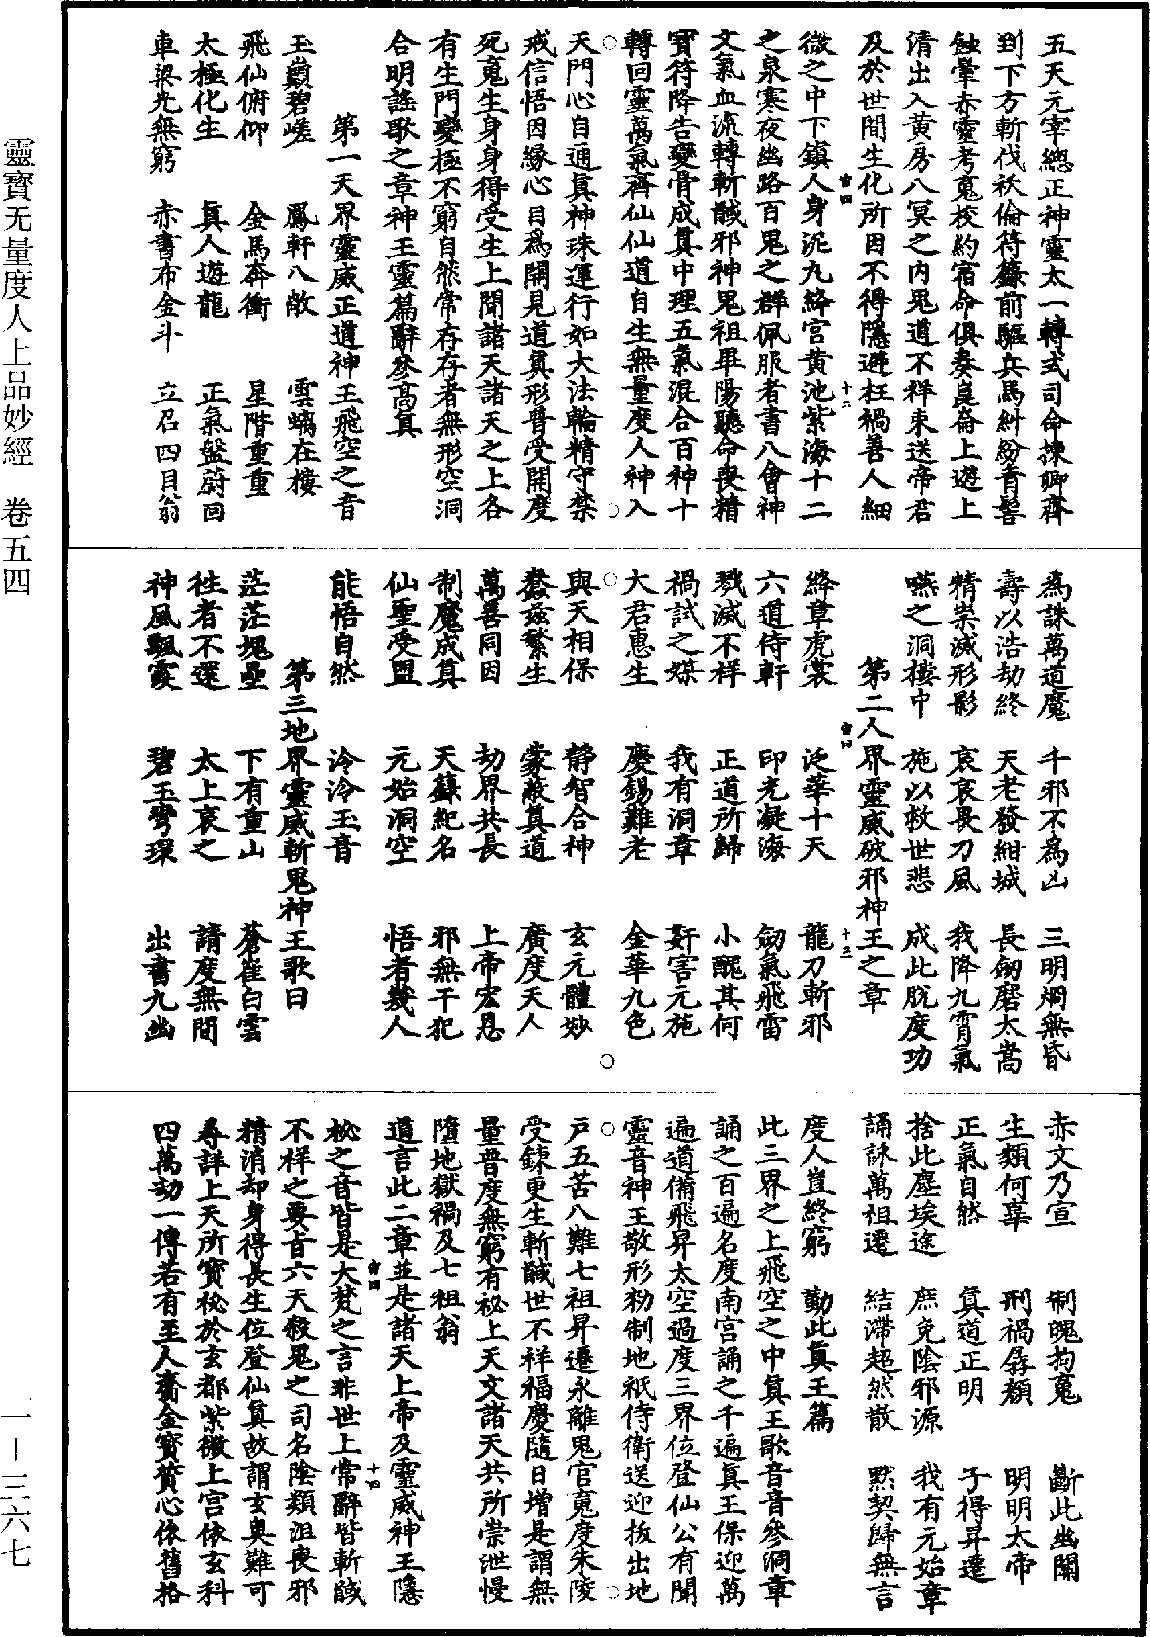 五天元宰總正神靈太一轉式司命揀卿齊
到下方斬伐袄倫符籙前驅兵馬糾紛青髻
蝕暈赤靈考鬼校約宿命俱奏崑崙上遊上
清出入黄房八冥之内鬼道不祥束送帝君
及於世間生化所因不得隱避枉禍善人細
微之中下鎮人身泥九絳宮黄池紫海十二
之泉寒夜幽路百鬼之群佩服者書八會神
文氣血流轉斬馘邪神鬼祖畢陽聽命喪精
寶符降告變骨成真中理五氣混合百神十
轉回靈萬氣齊仙仙道自生無量度人神入
天門心自通真神珠運行如大法輪精守禁
戒信悟因緣心目為開見道真形普受開度
死鬼生身身得受生上聞諸天諸天之上各
有生門變極不窮自然常存存者無形空洞
合明謠歌之章神王靈篇辭參高真
第一天界靈威正道神王飛空之音
玉巔碧嵯　鳳軒八敞　雲螭在樓
飛仙俯仰　金馬奔衝　星階重重
太極化生　真人遊龍　正氣盤蔚回
車梁光無窮　赤書布金斗　立召四目翁
為誅萬道魔　千邪不為凶　三明炯無昏
壽以浩劫終　天老發紺城　長劒磨太嵩
精祟滅形影　哀哀畏刀風　我降九霄氣
嚥之洞樓中　施以救世悲　成此脫度功
第二人界靈威破邪神王之章
絳章虎裳　泛華十天　龍刀斬邪
六道侍軒　印光凝海　劒氣飛雷
戮滅不祥　正道所歸　小醜其何
禍試之媒　我有洞章　姧害元施
大君惠生　慶錫難老　金華九色
與天相保　靜智合神　玄元體妙
蠢兹繁生　蒙蔽真道　廣度天人
萬善同因　劫界共長　上帝宏恩
制魔成真　天籙紀名　邪無干犯
仙聖受盟　元始洞空　悟者幾人
能悟自然　泠泠玉音
第三地界靈威斬鬼神王歌曰
茫茫塊壘　下有重山　蒼崔白雲
徃者不還　太上哀之　請度無間
神風飄霞　碧玉彎環　出書九幽
赤文乃宣　制魄拘鬼　斷此幽關
生類何辜　刑禍孱頽　明明太帝
正氣自然　真道正明　子得昇遷
捨此塵埃途　庶免陰邪源　我有元始章
誦詠萬祖遷　結滯超然散　默契歸無言
度人豈終窮　勤此真王篇
此三界之上飛空之中真王歌音音參洞章
誦之百遍名度南宮誦之千遍真王保迎萬
遍道備飛昇太空過度三界位登仙公有聞
靈音神王敬形初制地祇侍衛送迎抜出地
戸五苦八難七祖昇遷永離鬼官寬度朱陵
受鍊更生斬馘世不祥福慶隨日增是謂無
量普度無窮有祕上天文諸天共所崇泄慢
墮地獄禍及七祖翁
道言此二章並是諸天上帝及靈威神王隱
祕之音皆是大梵之言非世上常辭皆斬馘
不祥之要旨六天殺鬼之司名陰類沮喪邪
精消却身得長生位登仙真故謂玄奥難可
尋詳上天所寳祕於玄都紫微上宮依玄科
四萬劫一傳若有至人齎金寳質心依舊格
靈寶无量度人上品妙經　卷五四
一—三六七